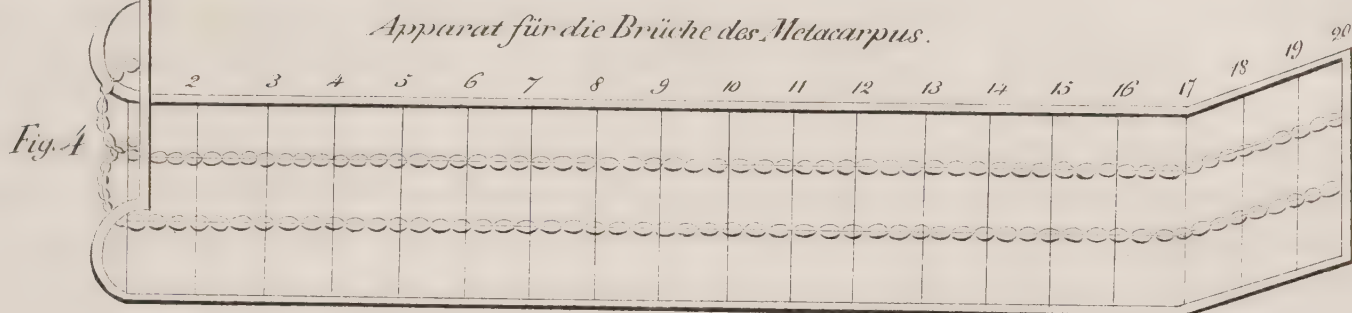 Apparat für die Brüche des Metacarpus.
2 3 4 5 6 7 8 9 10 11 12 13 14 15 16 17 18 19 20
Fig. 4